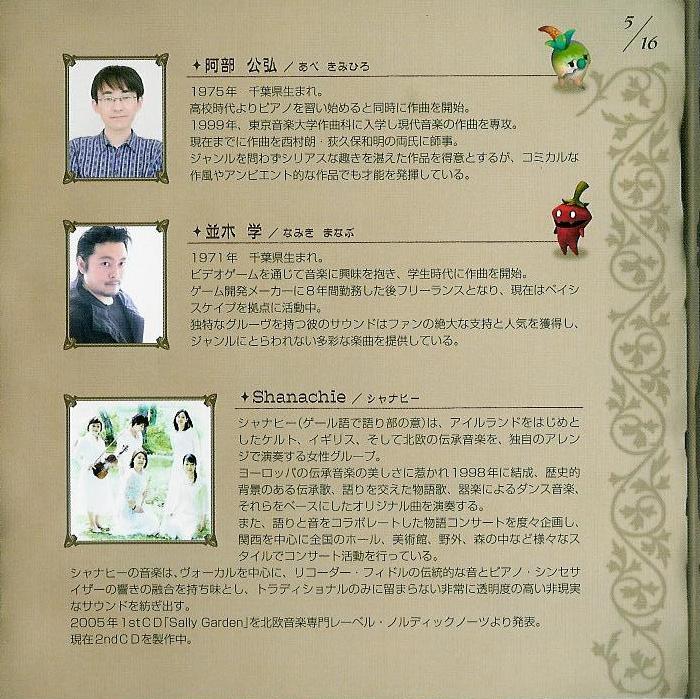 5/16
✦阿部 公弘 / あべ きみひろ
1975年　千葉県生まれ。
高校時代よりピアノを習い始めると同時に作曲を開始。
1999年、東京音楽大学作曲科に入学し現代音楽の作曲を専攻。
現在までに作曲を西村朗・荻久保和明の両氏に師事。
ジャンルを問わずシリアスな趣きを湛えた作品を得意とするが、コミカルな
作風やアンビエント的な作品でも才能を発揮している。
✦並木 学 / なみき まなぶ
1971年　千葉県生まれ。
ビデオゲームを通じて音楽に興味を抱き、学生時代に作曲を開始。
ゲーム開発メーカーに8年間勤務した後フリーランスとなり、現在はベイシ
スケイプを拠点に活動中。
独特なグルーヴを持つ彼のサウンドはファンの絶大な支持と人気を獲得し、
ジャンルにとらわれない多彩な楽曲を提供している。
✦Shanachie / シャナヒー
シャナヒー(ゲール語で語り部の意)は、アイルランドをはじめと
したケルト、イギリス、そして北欧の伝承音楽を、独自のアレン
ジで演奏する女性グループ。
ヨーロッパの伝承音楽の美しさに惹かれ1998年に結成、歴史的
背景のある伝承歌、語りを交えた物語歌、器楽によるダンス音楽、
それらをベースにしたオリジナル曲を演奏する。
また、語りと音をコラボレートした物語コンサートを度々企画し、
関西を中心に全国のホール、美術館、野外、森の中など様々なス
タイルでコンサート活動を行っている。
シャナヒーの音楽は、ヴォーカルを中心に、リコーダー・フィドルの伝統的な音とピアノ・シンセサ
イザーの響きの融合を持ち味とし、トラディショナルのみに留まらない非常に透明度の高い非現実
なサウンドを紡ぎ出す。
2005年1stCD｢Sally Garden｣を北欧音楽専門レーベル・ノルディックノーツより発表。
現在2ndCDを製作中。